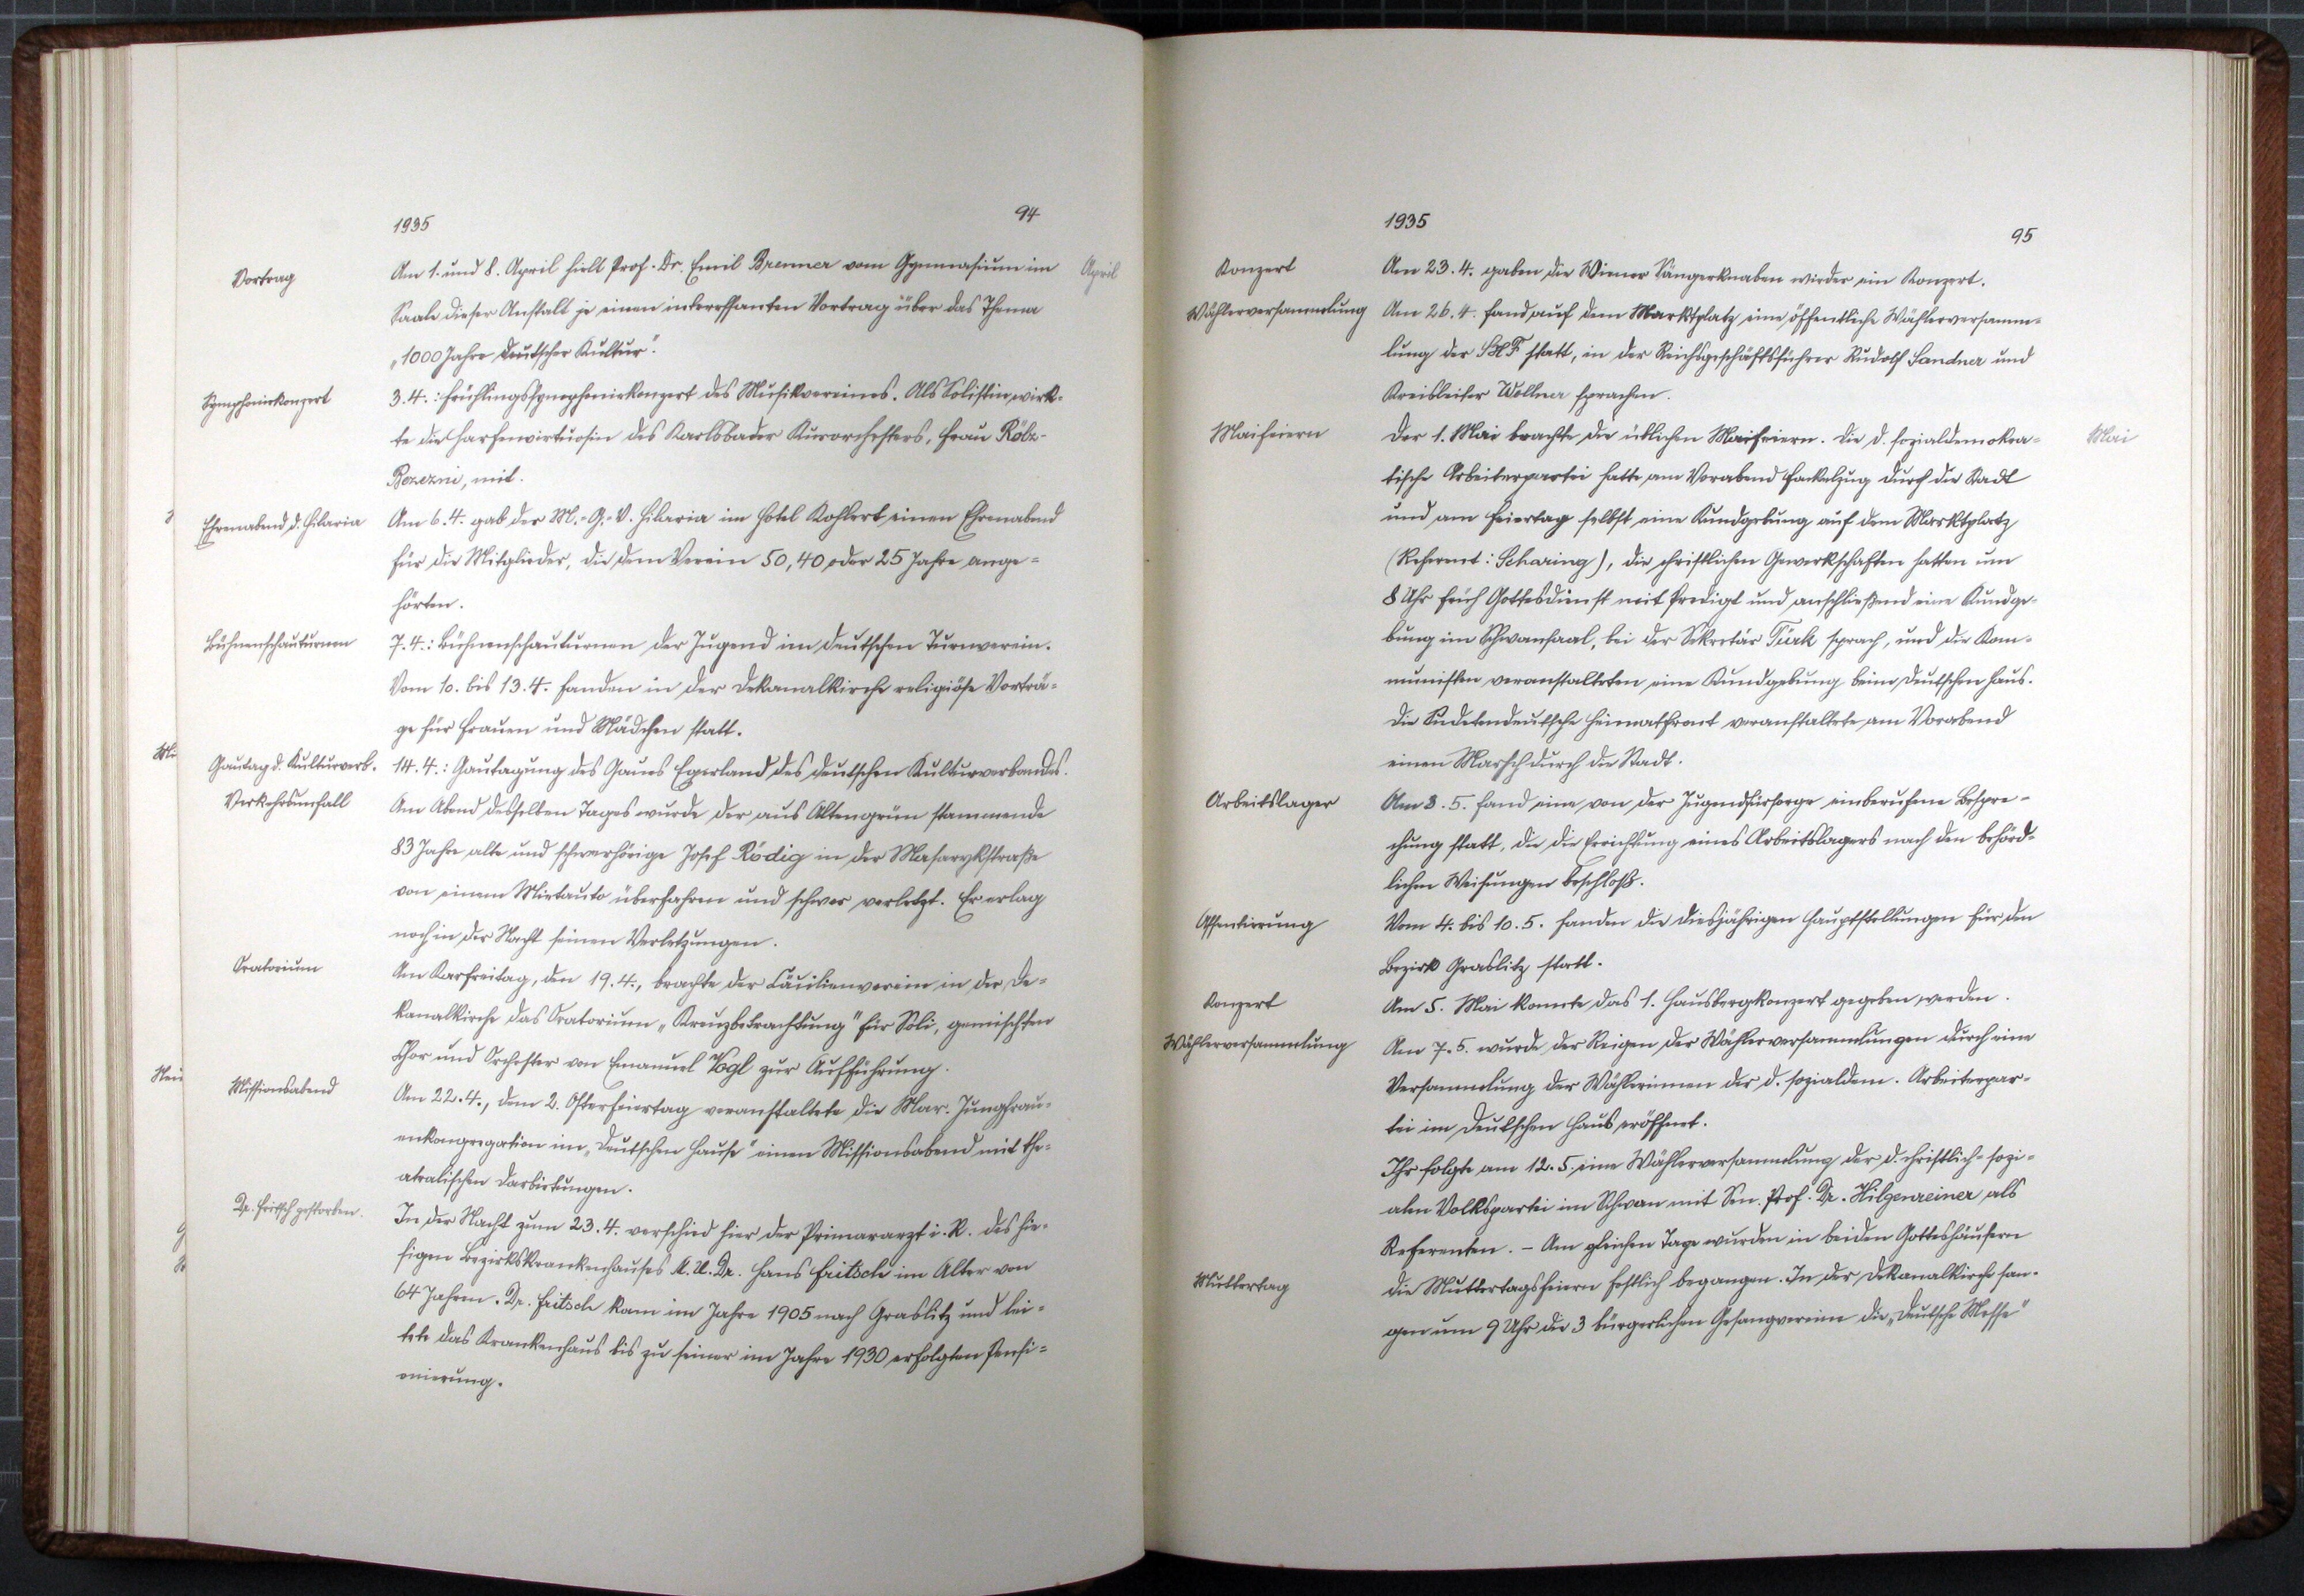 1935
94
Vortrag
Am 1. und 8. April hielt Prof. Dr. Emil Brenner vom Gymnasium im
April
Saale dieser Anstalt je einen interessanten Vortrag über das Thema
„1000 Jahre deutscher Kultur".
Symphoniekonzert
3.4.: Frühlingssymphoniekonzert des Musikvereines. Als Solistin wirk-
te die Harfenvirtuosin des Karlsbader Kurorchesters, Frau Rölz-
Berezni, mit.
Ehrenabend d. Hilaria
Am 6.4. gab der M.-G.-V. Hilaria im Hotel Kohlert einen Ehrenabend
für die Mitglieder, die dem Verein 50, 40 oder 25 Jahre ange-
hörten.
Bühnenschauturnen
7.4.: Bühnenschauturnen der Jugend im deutschen Turnverein.
Vom 10. bis 13.4. fanden in der Dekanalkirche religiöse Vorträ-
ge für Frauen und Mädchen statt.
Gautag d. Kulturverb.
14.4.: Gautagung des Gaues Egerland des deutschen Kulturverbandes.
Verkehrsunfall
Am Abend desselben Tages wurde der aus Altengrün stammende
83 Jahre alte und schwerhörige Josef Rödig in der Masarykstraße
von einem Mietauto überfahren und schwer verletzt. Er erlag
noch in der Nacht seinen Verletzungen.
Oratorium
Am Karfreitag, den 19.4., brachte der Cäcilienverein in der De-
kanalkirche das Oratorium „Kreuzbetrachtung" für Soli, gemischten
Chor und Orchester von Emanuel Vogl zur Aufführung.
Missionsabend
Am 22.4., dem 2. Osterfeiertag veranstaltete die Mar. Jungfrau-
enkongregation im „Deutschen Hause" einen Missionsabend mit the-
atralischen Darbietungen.
Dr. Fritsch gestorben.
In der Nacht zum 23.4. verschied hier der Primararzt i. R. des hie-
sigen Bezirkskrankenhauses M. U. Dr. Hans Fritsch im Alter von
64 Jahren. Dr. Fritsch kam im Jahre 1905 nach Graslitz und lei-
tete das Krankenhaus bis zu seiner im Jahre 1930 erfolgten Pensi-
onierung.
1935
95
Konzert
Am 23.4. gaben die Wiener Sängerknaben wieder ein Konzert.
Wählerversammlung
Am 26.4. fand auf dem Marktplatz eine öffentliche Wählerversamm-
lung der SHF statt, in der Reichsgeschäftsführer Rudolf Sandner und
Kreisleiter Wollner sprachen.
Maifeiern
Der 1. Mai brachte die üblichen Maifeiern. Die d. sozialdemokra-
Mai
tische Arbeiterpartei hatte am Vorabend Fackelzug durch die Stadt
und am Feiertag selbst eine Kundgebung auf dem Marktplatz
(Referent: Scharing), die christlichen Gewerkschaften hatten um
8 Uhr früh Gottesdienst mit Predigt und anschließend eine Kundge-
bung im Schwansaal, bei der Sekretär Türk sprach, und die Kom-
munisten veranstalteten eine Kundgebung beim Deutschen Haus.
Die Sudetendeutsche Heimatfront veranstaltete am Vorabend
einen Marsch durch die Stadt.
Arbeitslager
Am 3.5. fand eine von der Jugendfürsorge einberufene Bespre-
chung statt, die die Errichtung eines Arbeitslagers nach den behörd-
lichen Weisungen beschloß.
Assentierung
Vom 4. bis 10.5. fanden die diesjährigen Hauptstellungen für den
Bezirk Graslitz statt.
Konzert
Am 5. Mai konnte das 1. Hausbergkonzert gegeben werden.
Wählerversammlung
Am 7.5. wurde der Reigen der Wählerversammlungen durch eine
Versammlung der Wählerinnen der d. sozialdem. Arbeiterpar-
tei im Deutschen Haus eröffnet.
Ihr folgte am 12.5. eine Wählerversammlung der d. christlich-sozi-
alen Volkspartei im Schwan mit Sen. Prof. Dr. Hilgenreiner als
Referenten. – Am gleichen Tage wurden in beiden Gotteshäusern
Muttertag
die Muttertagsfeiern festlich begangen. In der Dekanalkirche san-
gen um 9 Uhr die 3 bürgerlichen Gesangvereine die „Deutsche Messe"